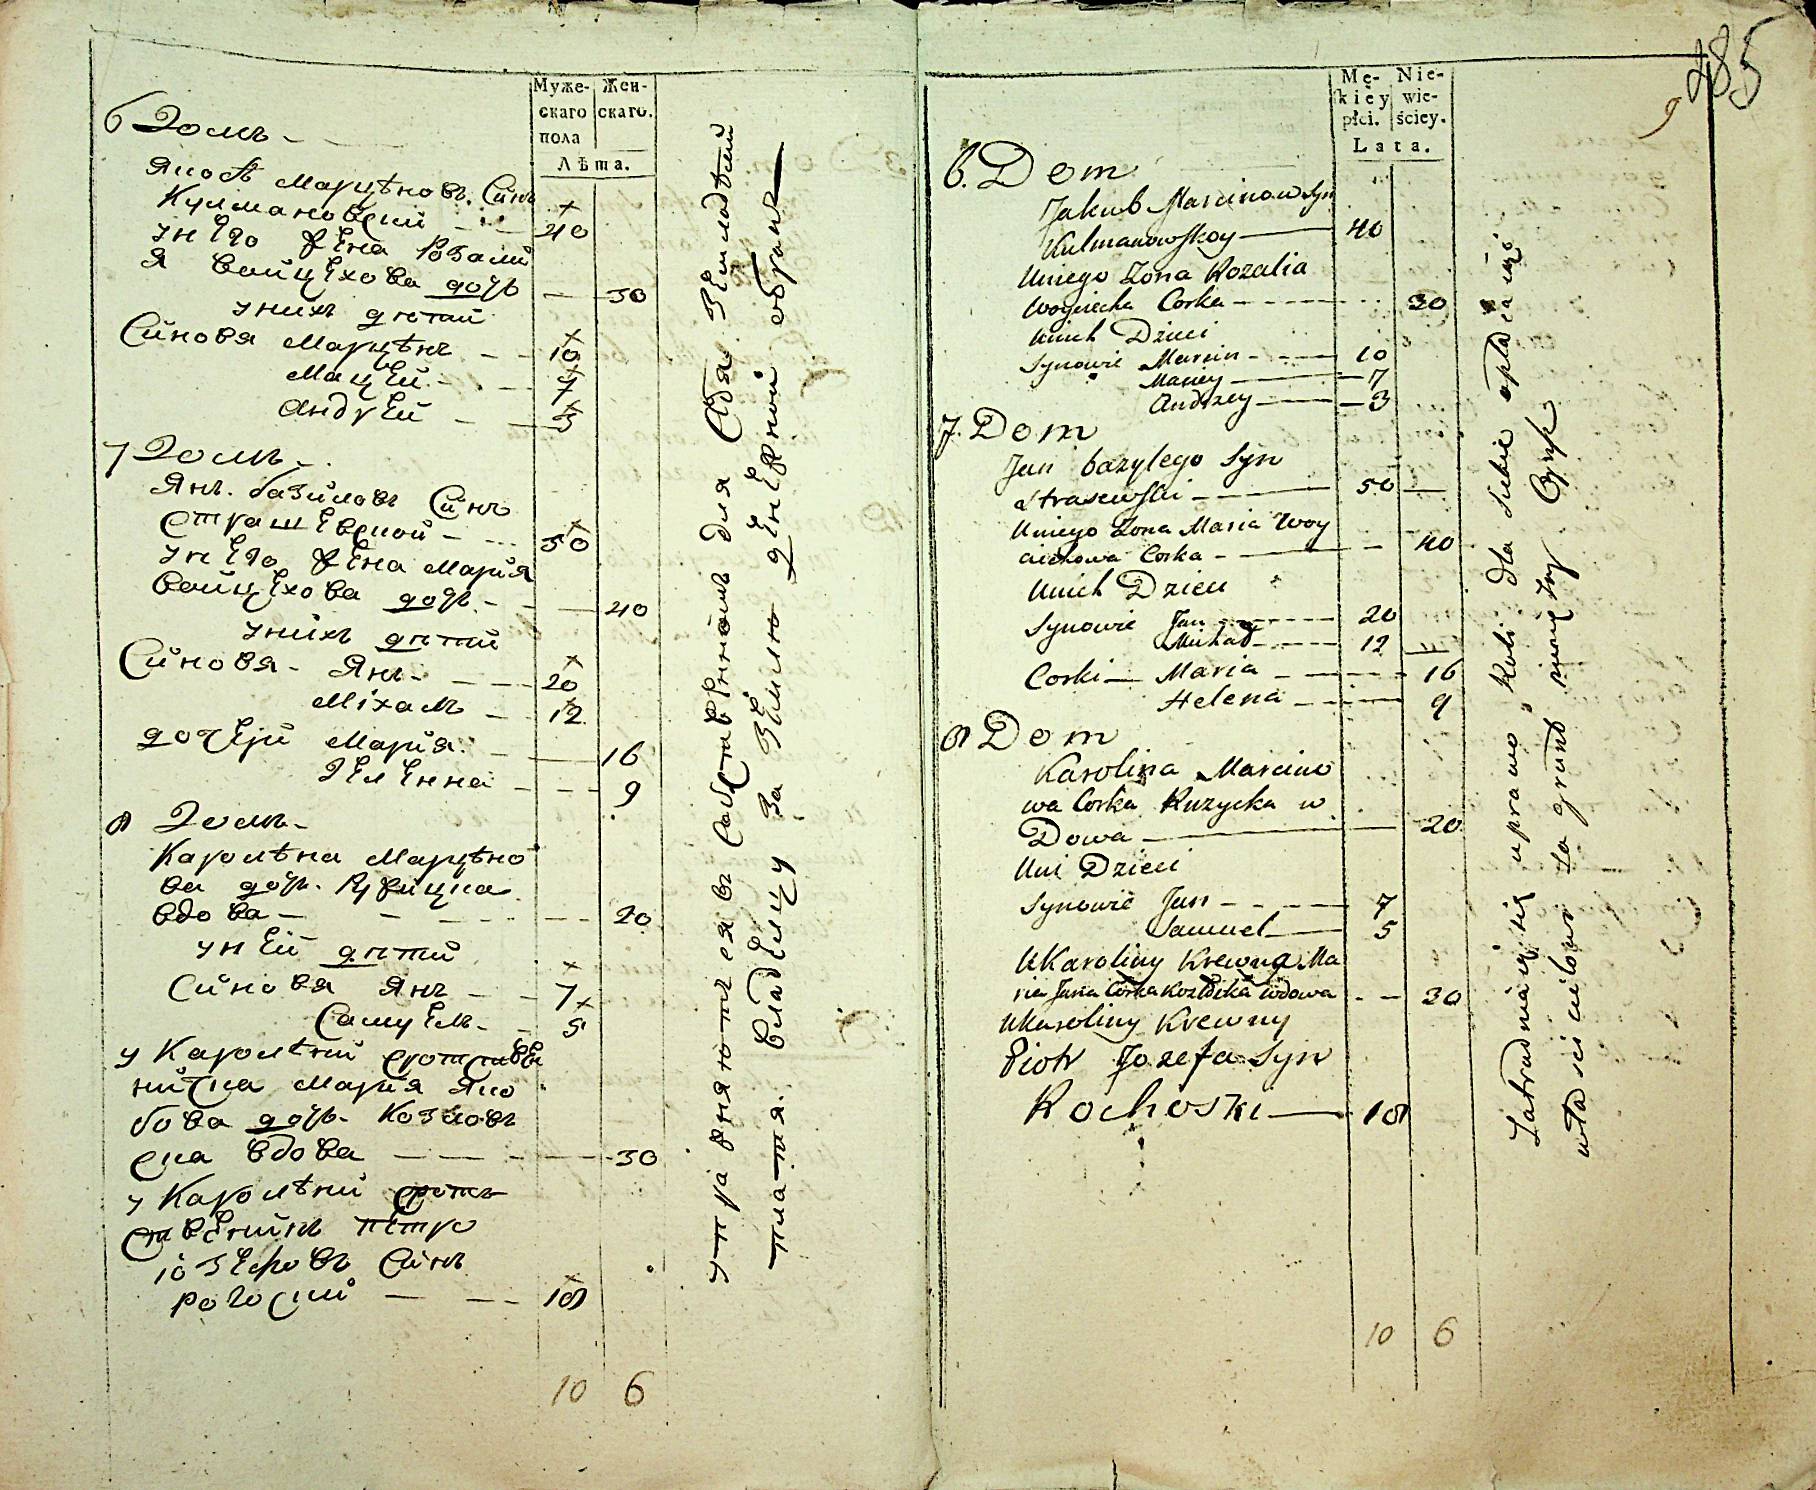 Муже- Жен-
скаго скаго.
пола
Лѣта.
6 Домъ
Якобъ Марцѣновъ Синъ
Кулмановскій 40
у нѣго жена Розали
я Войцѣхова дочь 30
у нихъ дѣтей
Синовя Марцѣнъ 10
Мацѣй 7
Андрѣй 3
7 Домъ
Янъ базиловъ Синъ
Страшѣвской 50
у нѣго жена Мария
Войцѣхова дочь 40
у нихъ дѣтей
Синовя Янъ 20
Міхалъ 12
дочерй Мария 16
Гелѣнна 9
8 Домъ
Каролѣна Марцѣно
ва дочь Ружицка
вдова 20
у нѣй дѣтей
Синовя Янъ 7
Самуѣлъ 5
у Каролѣни сротствѣн
нитска Мария Яко
бова дочь Козловъ
ска вдова 30
у Каролѣни сротъ
ствѣнникъ Пѣтръ
іозѣфовъ Синъ
рогоскій 18
10 6
платя владѣлцу за зѣмлю дѣнѣжной оброкъ
485
9
Mę- Nie-
kiéy wie-
płci. ściey.
Lata.
6. Dom
Jakub Marcinow Syn
Kulmanowskoy 40
Uniego Zona Rozalia
Woyciecha Corka 30
Unich Dzieci
Synowie Marcin 10
Maciey 7
Andrzey 3
7. Dom
Jan bazylego Syn
Straszewski 50
Uniego Zona Maria Woy
ciechowa Corka 40
Unich Dzieci
Synowie Jan 20
Michał 12
Corki Maria 16
Helena 9
8 Dom
Karolina Marcino
wa Corka Ruzycka w
Dowa 20
Uni Dzieci
Synowie Jan 7
Samuel 5
UKaroliny Krewna Ma
ria Jana Corka Kozłoska wdowa 30
UKaroliny Krewny
Piotr Jozefa Syn
Rochoski 18
10 6
Zatrudniaią się uprawą Roli dla siebie opłacaiąc
właścicielowi za grunt